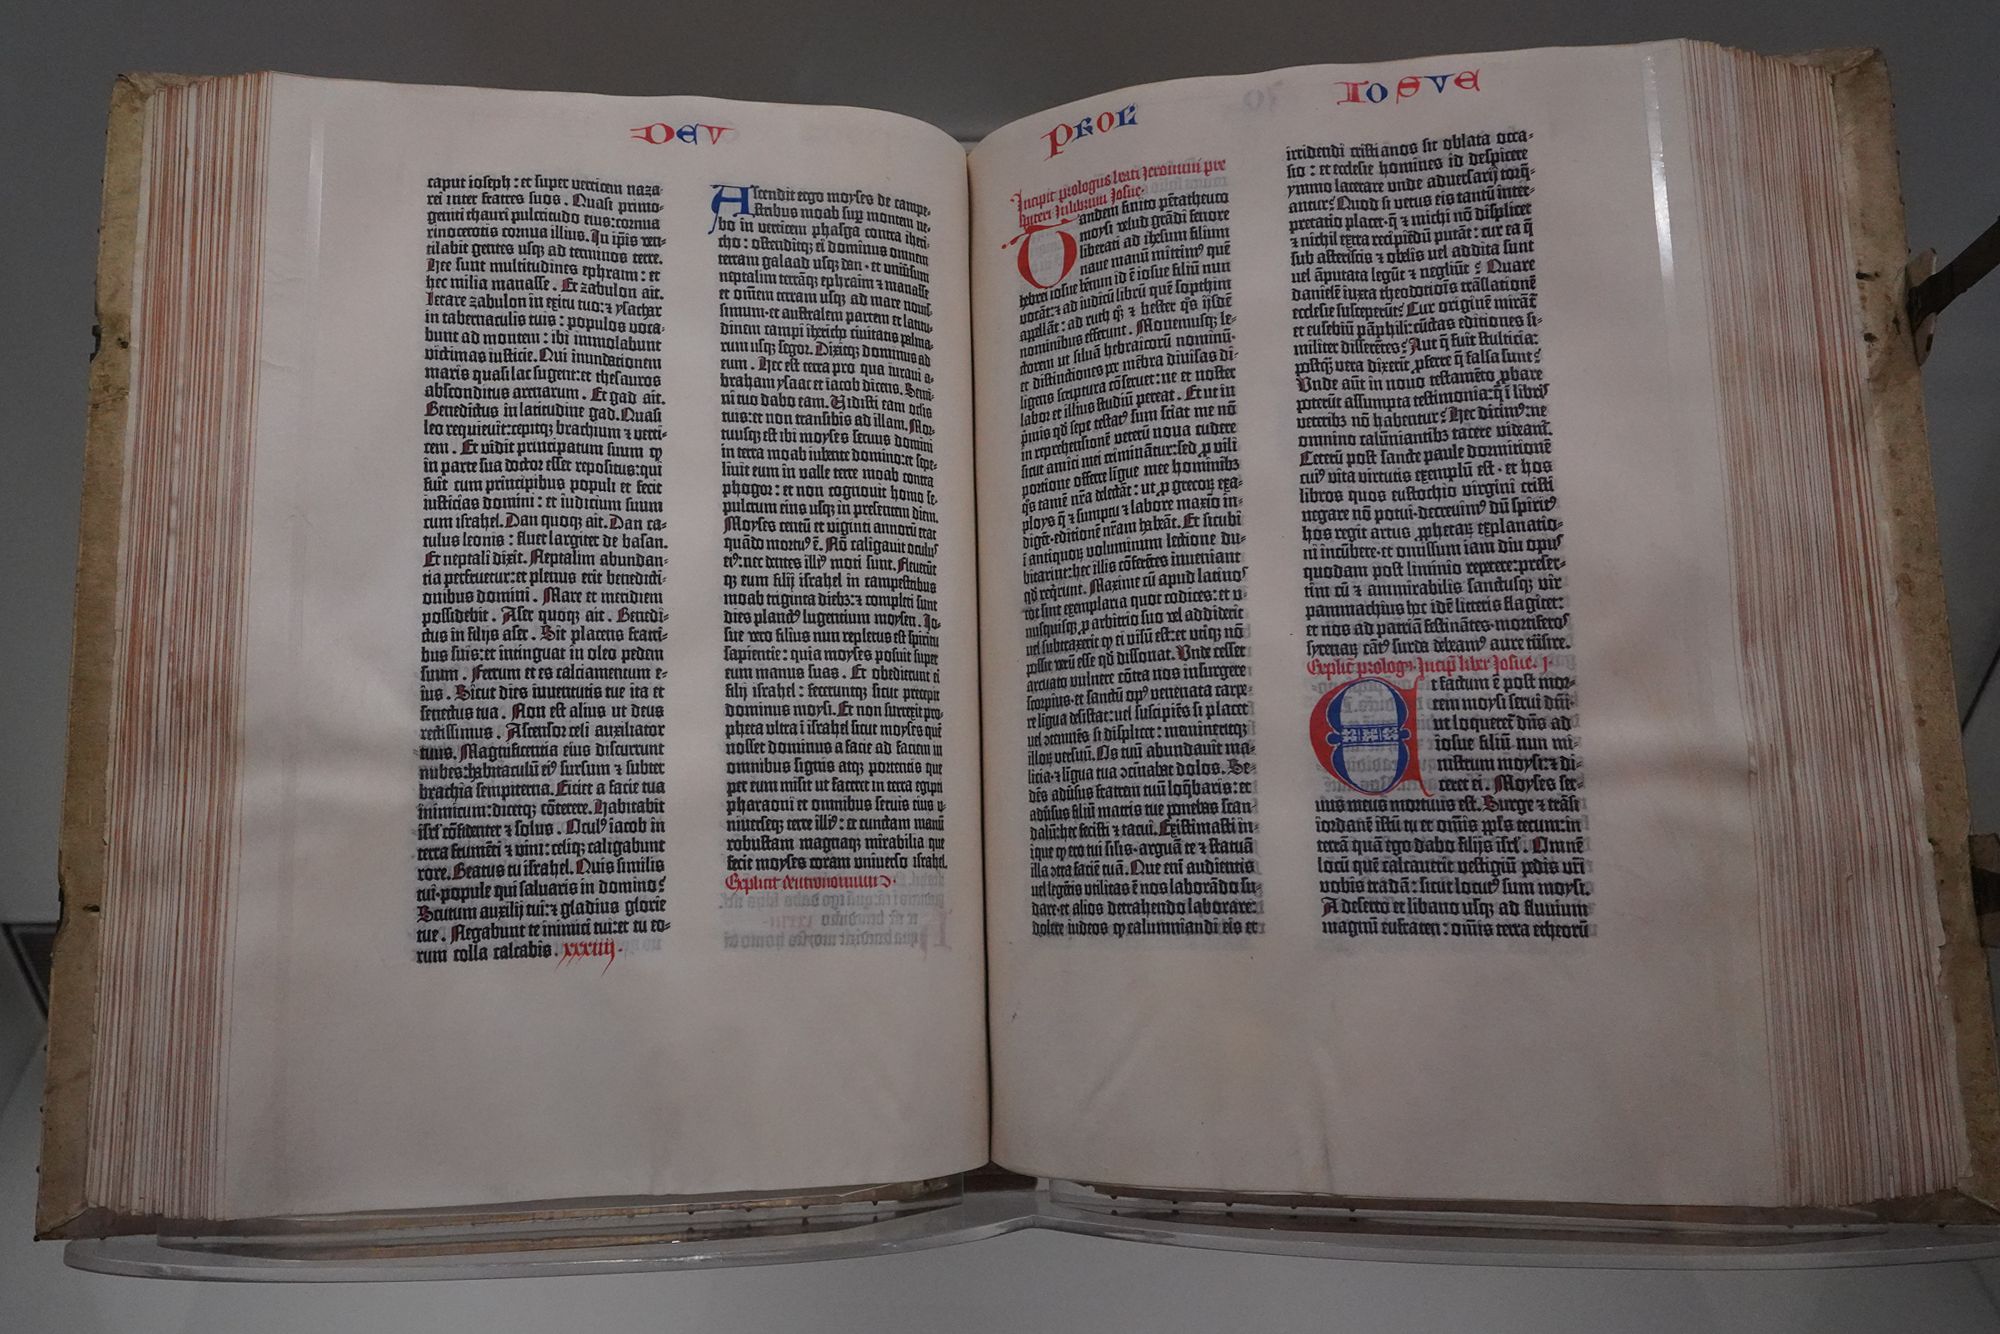 DEV
caput ioseph : et super verticem naza-
rei inter fratres suos . Quasi primo-
geniti thauri pulcritudo eius : cornua
rinocerotis cornua illius . In ip̄is ven-
tilabit gentes usqꝫ ad terminos terre.
Hec sunt multitudines ephraim : et
hec milia manasse . Et zabulon ait.
Letare zabulon in exitu tuo : ⁊ ysachar
in tabernaculis tuis : populos voca-
bunt ad montem : ibi immolabunt
victimas iusticie . Qui inundationem
maris quasi lac sugent : et thesauros
absconditus arenarum . Et gad ait.
Benedictus in latitudine gad . Quasi
leo requieuit : cepitqꝫ brachium ⁊ verti-
cem . Et vidit principatum suum ꝙ
in parte sua doctor esset repositus : qui
fuit cum principibus populi et fecit
iusticias domini : et iudicium suum
cum israhel . Dan quoqꝫ ait . Dan ca-
tulus leonis : fluet largiter de basan.
Et neptali dixit . Neptalim abundan-
tia perfruetur : et plenus erit benedicti-
onibus domini . Mare et meridiem
possidebit . Aser quoqꝫ ait . Benedi-
ctus in filijs aser . Sit placens fratri-
bus suis : et intinguat in oleo pedem
suum . Ferrum et es calciamentum e-
ius . Sicut dies iuventutis tue ita et
senectus tua . Non est alius ut deus
rectissimus . Ascensor celi auxiliator
tuus . Magnificentia eius discurrunt
nubes : habitaculū eiꝰ sursum ⁊ subter
brachia sempiterna . Eiciet a facie tua
inimicum : dicetqꝫ cōterere . Habitabit
isrl̄ cōfidenter ⁊ solus . Oculꝰ iacob in
terra frumēti ⁊ vini : celiqꝫ caligabunt
rore . Beatus tu israhel . Quis similis
tui popule qui saluaris in domino ?
Scutum auxilij tui : ⁊ gladius glorie
tue . Negabunt te inimici tui : et tu eo-
rum colla calcabis . xxxiiij .
Ascendit ergo moyses de campe-
stribus moab sup̄ montem ne-
bo in verticem phasga contra iheri-
cho : ostenditqꝫ ei dominus omnem
terram galaad usqꝫ dan · et uniūsum
neptalim terrāqꝫ ephraim ⁊ manasse
et om̄em terram usqꝫ ad mare nouis-
simum · et australem partem et latitu-
dinem campi ihericho civitatis palma-
rum usqꝫ segor . Dixitqꝫ dominus ad
eum . Hec est terra pro qua iuraui a-
braham ysaac et iacob dicens . Semi-
ni tuo dabo eam . Vidisti eam oculis
tuis : et non transibis ad illam . Mor-
tuusqꝫ est ibi moyses seruus domini
in terra moab iubente domino : et sepe-
liuit eum in valle terre moab contra
phogor : et non cognouit homo se-
pulcrum eius usqꝫ in presentem diem.
Moyses centū et viginti annorū erat
quādo mortuꝰ ē . Nō caligauit oculus
eiꝰ : nec dentes illiꝰ moti sunt . Fleuerūt
qꝫ eum filij israhel in campestribus
moab triginta diebꝫ : ⁊ completi sunt
dies planctꝰ lugentium moysen . Io-
sue vero filius nun repletus est spiritu
sapientie : quia moyses posuit super
eum manus suas . Et obedierunt ei
filij israhel : feceruntqꝫ sicut precepit
dominus moysi . Et non surrexit pro-
pheta ultra ī israhel sicut moyses quē
nosset dominus a facie ad faciem in
omnibus signis atqꝫ portentis que
per eum misit ut faceret in terra egipti
pharaoni et omnibus seruis eius u-
niuerseqꝫ terre illiꝰ : et cunctam manū
robustam magnaqꝫ mirabilia que
fecit moyses coram universo israhel.
Explicit deutronomium
PROL
Incipit prologus beati Jeronimi pre
spiteri in librum Josue.
Tandem finito pētatheuco
moysi velud grādi fenore
liberati ad ihesum filium
naue manū mittimꝰ quē
hebrei iosue bēnun id ē iosue filiū nun
vocāt : ⁊ ad iudicū librū quē sopthim
appellāt : ad ruth qꝫ ⁊ hester q̄s ijsdē
nominibus efferunt . Monemusqꝫ le-
ctorem ut siluā hebraicorū nominū·
et distinctiones per mēbra diuisas di-
ligens scriptura cōseruet : ne et noster
labor et illius studiū pereat . Et ut in
p̄mis qd̄ sepe testatꝰ sum sciat me nō
in reprehensionē veterū noua cudere
sicut amici mei criminātur : sed ꝓ virili
portione offerre līgue mee hominibꝫ
q̄s tamē nr̄a delectāt : ut ꝓ grecoꝝ exa-
ploys q̄ ⁊ sumptu ⁊ labore maxīo in-
digēt · editionē nr̄am habeāt . Et sicubi
ī antiquoꝝ voluminum lectione du-
bitarint : hec illis cōferētes inueniant
qd̄ req̄runt . Maxime cū apud latinoꝰ
tot sint exemplaria quot codices : et u-
nusquisqꝫ ꝓ arbitrio suo vel addiderit
vel subtraxerit qꝫ ei visū est : et utiqꝫ nō
possit verū esse qd̄ dissonat . Vnde cesset
arcuato vulnere cōtra nos insurgere
scorpius · et sanctū opꝰ venenata carpe-
re līgua desistat : vel suscipiēs si placet
vel ꝯtemnēs si displicet : memineritqꝫ
illoꝝ versuū . Os tuū abundauit ma-
licia · ⁊ līgua tua ꝯcinabat dolos . Se-
dēs adūsus fratrem tuū loq̄baris : et
adūsus filiū matris tue ponebas scan-
dalū : hec fecisti ⁊ tacui . Existimasti in-
ique ꝙ ero tui silis · arguā te ⁊ statuā
illa ꝯtra faciē tuā . Que eni audientis
vel legētis utilitas ē nos laborādo su-
dare · et alios detrahendo laborare :
dolere iudeos ꝙ calumniandi eis et
IOSVE
irridendi cristianos sit oblata occa-
sio : et ecclesie homines id despicere
ymmo lacerare unde adversarij torq̄-
antur . Quod si vetus eis tantū inter-
pretatio placet · q̄ ⁊ michi nō displicet
⁊ nichil extra recipiēdū putāt : cur ea q̄
sub asteriscis ⁊ obelis vel addita sunt
vel āputata legūt ⁊ negliūt ? Quare
danielē iuxta theodotiōis trāslationē
ecclesie susceperūt ? Cur originē mirāt̄
et eusebiū pāphili : cūctas editiones si-
militer disserētes ? Aut q̄ fuit stulticia :
postqꝫ vera dixerīt ꝓferre q̄ falsa sunt ?
Vnde aūt in nouo testamēto ꝓbare
poterūt assumpta testimonia : q̄ ī librꝭ
veteribꝫ nō habentur ? Hec dicimꝰ : ne
omnino calūniantibꝫ tacere videamꝛ.
Ceterū post sancte paule dormitionē
cuiꝰ vita virtutis exemplū est · et hos
libros quos eustochio virgini cristi
negare nō potui · decreuimꝰ dū spiritꝰ
hos regit artus ꝓphetaꝝ explanatio-
ni incūbere · et omissum iam diu opꝰ
quodam post liminio repetere : preser-
tim cū ⁊ ammirabilis sanctusqꝫ vir
pammachius hoc idē litteris flagitet :
et nos ad patriā festinātes · mortiferoꝰ
syrenaꝝ cātꝰ surda debeamꝰ aure trāsire.
Explicit prologꝰ. Incipit liber Josue. j.
Et factum ē post mor-
tem moysi serui dn̄i·
ut loqueret̄ dn̄s ad
iosue filiū nun mi-
nistrum moysi : ⁊ di-
ceret ei . Moyses ser-
uus meus mortuus est . Surge ⁊ trāsi
iordanē istū tu et om̄is ppl̄s tecum : in
terrā quā ego dabo filijs isrl̄ . Omnē
locū quē calcauerit vestigiū pedis vr̄i
vobis tradā : sicut locutꝰ sum moysi.
A deserto et libano usqꝫ ad fluuium
magnū eufraten : om̄is terra etheorū